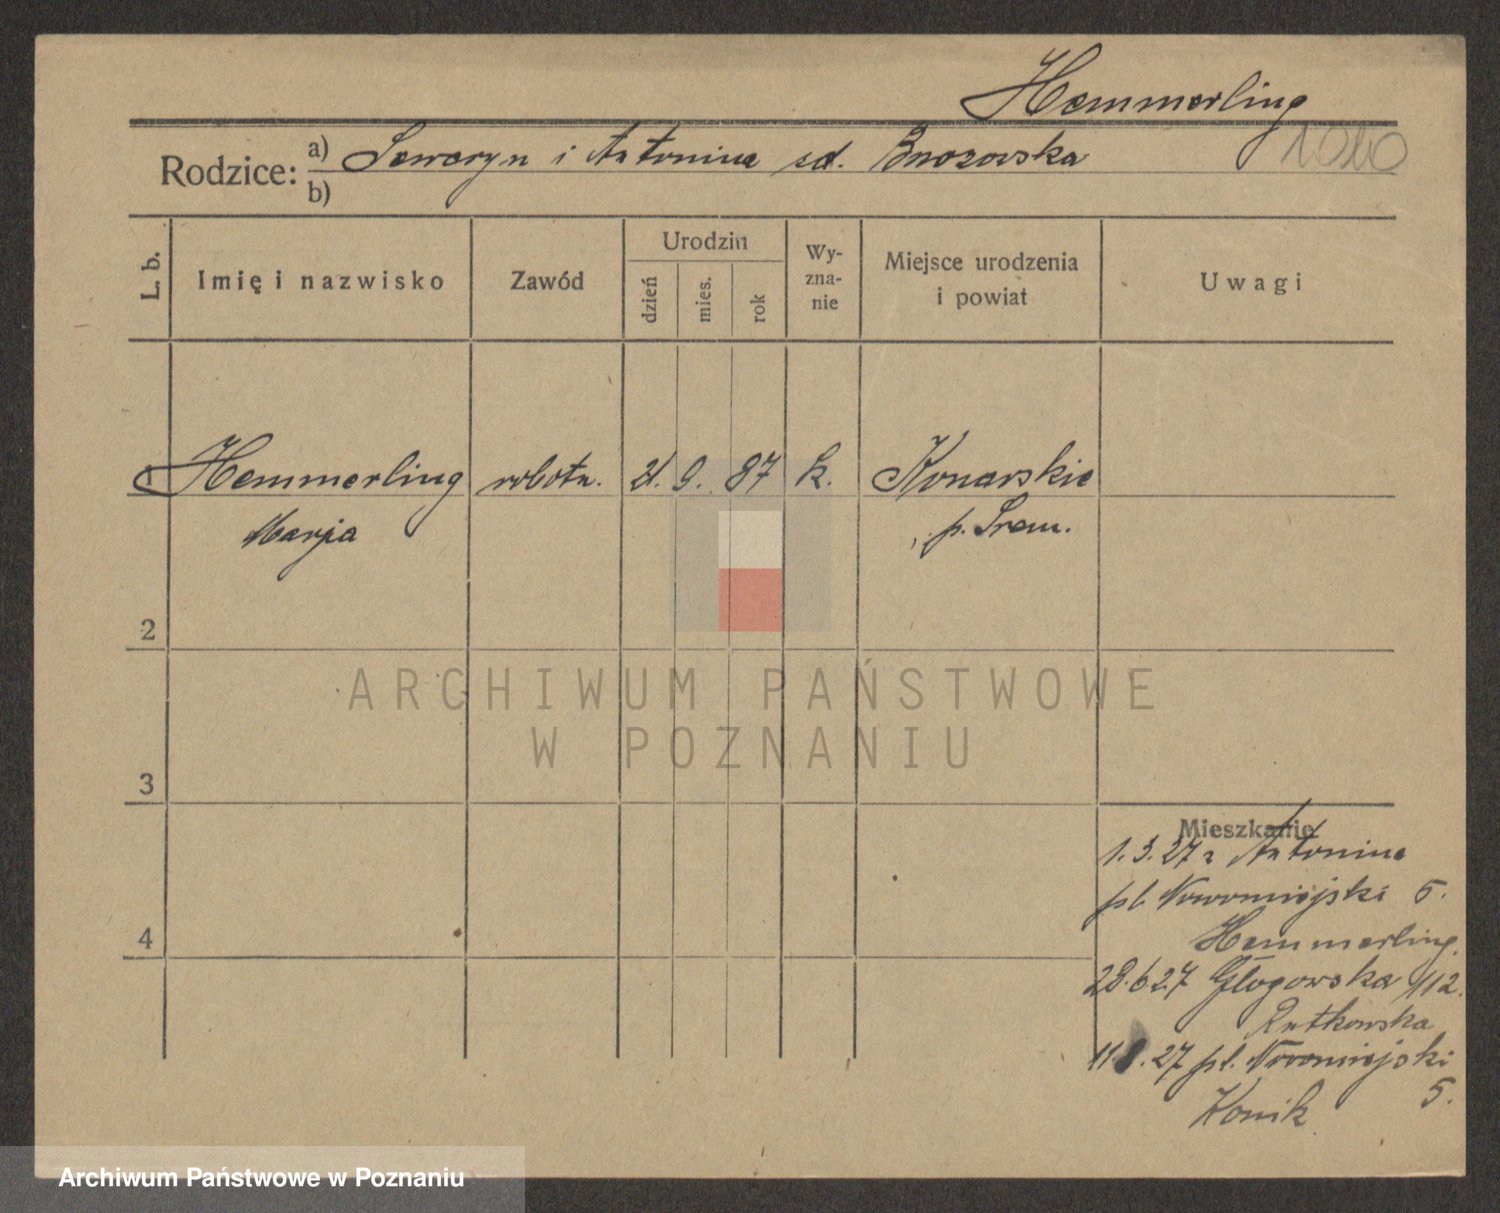 Hemmerling
1010
Rodzice: a) Seweryn i Antonina zd. Brzozowska
b)
L. b.
Imię i nazwisko
Zawód
Urodzin
dzień
mies.
rok
Wy-
zna-
nie
Miejsce urodzenia
i powiat
Uwagi
1 Hemmerling robotn. 21. 9. 87 k. Konarskie
Marja p. Śrem.
2
3
4
ARCHIWUM PAŃSTWOWE
W POZNANIU
Mieszkanie
1.3.27 Antonina
pl. Nowomiejski 5.
Hemmerling
28.6.27 Głogowska 112.
Rutkowska
11.8.27 pl. Nowomiejski
5.
Konik
Archiwum Państwowe w Poznaniu